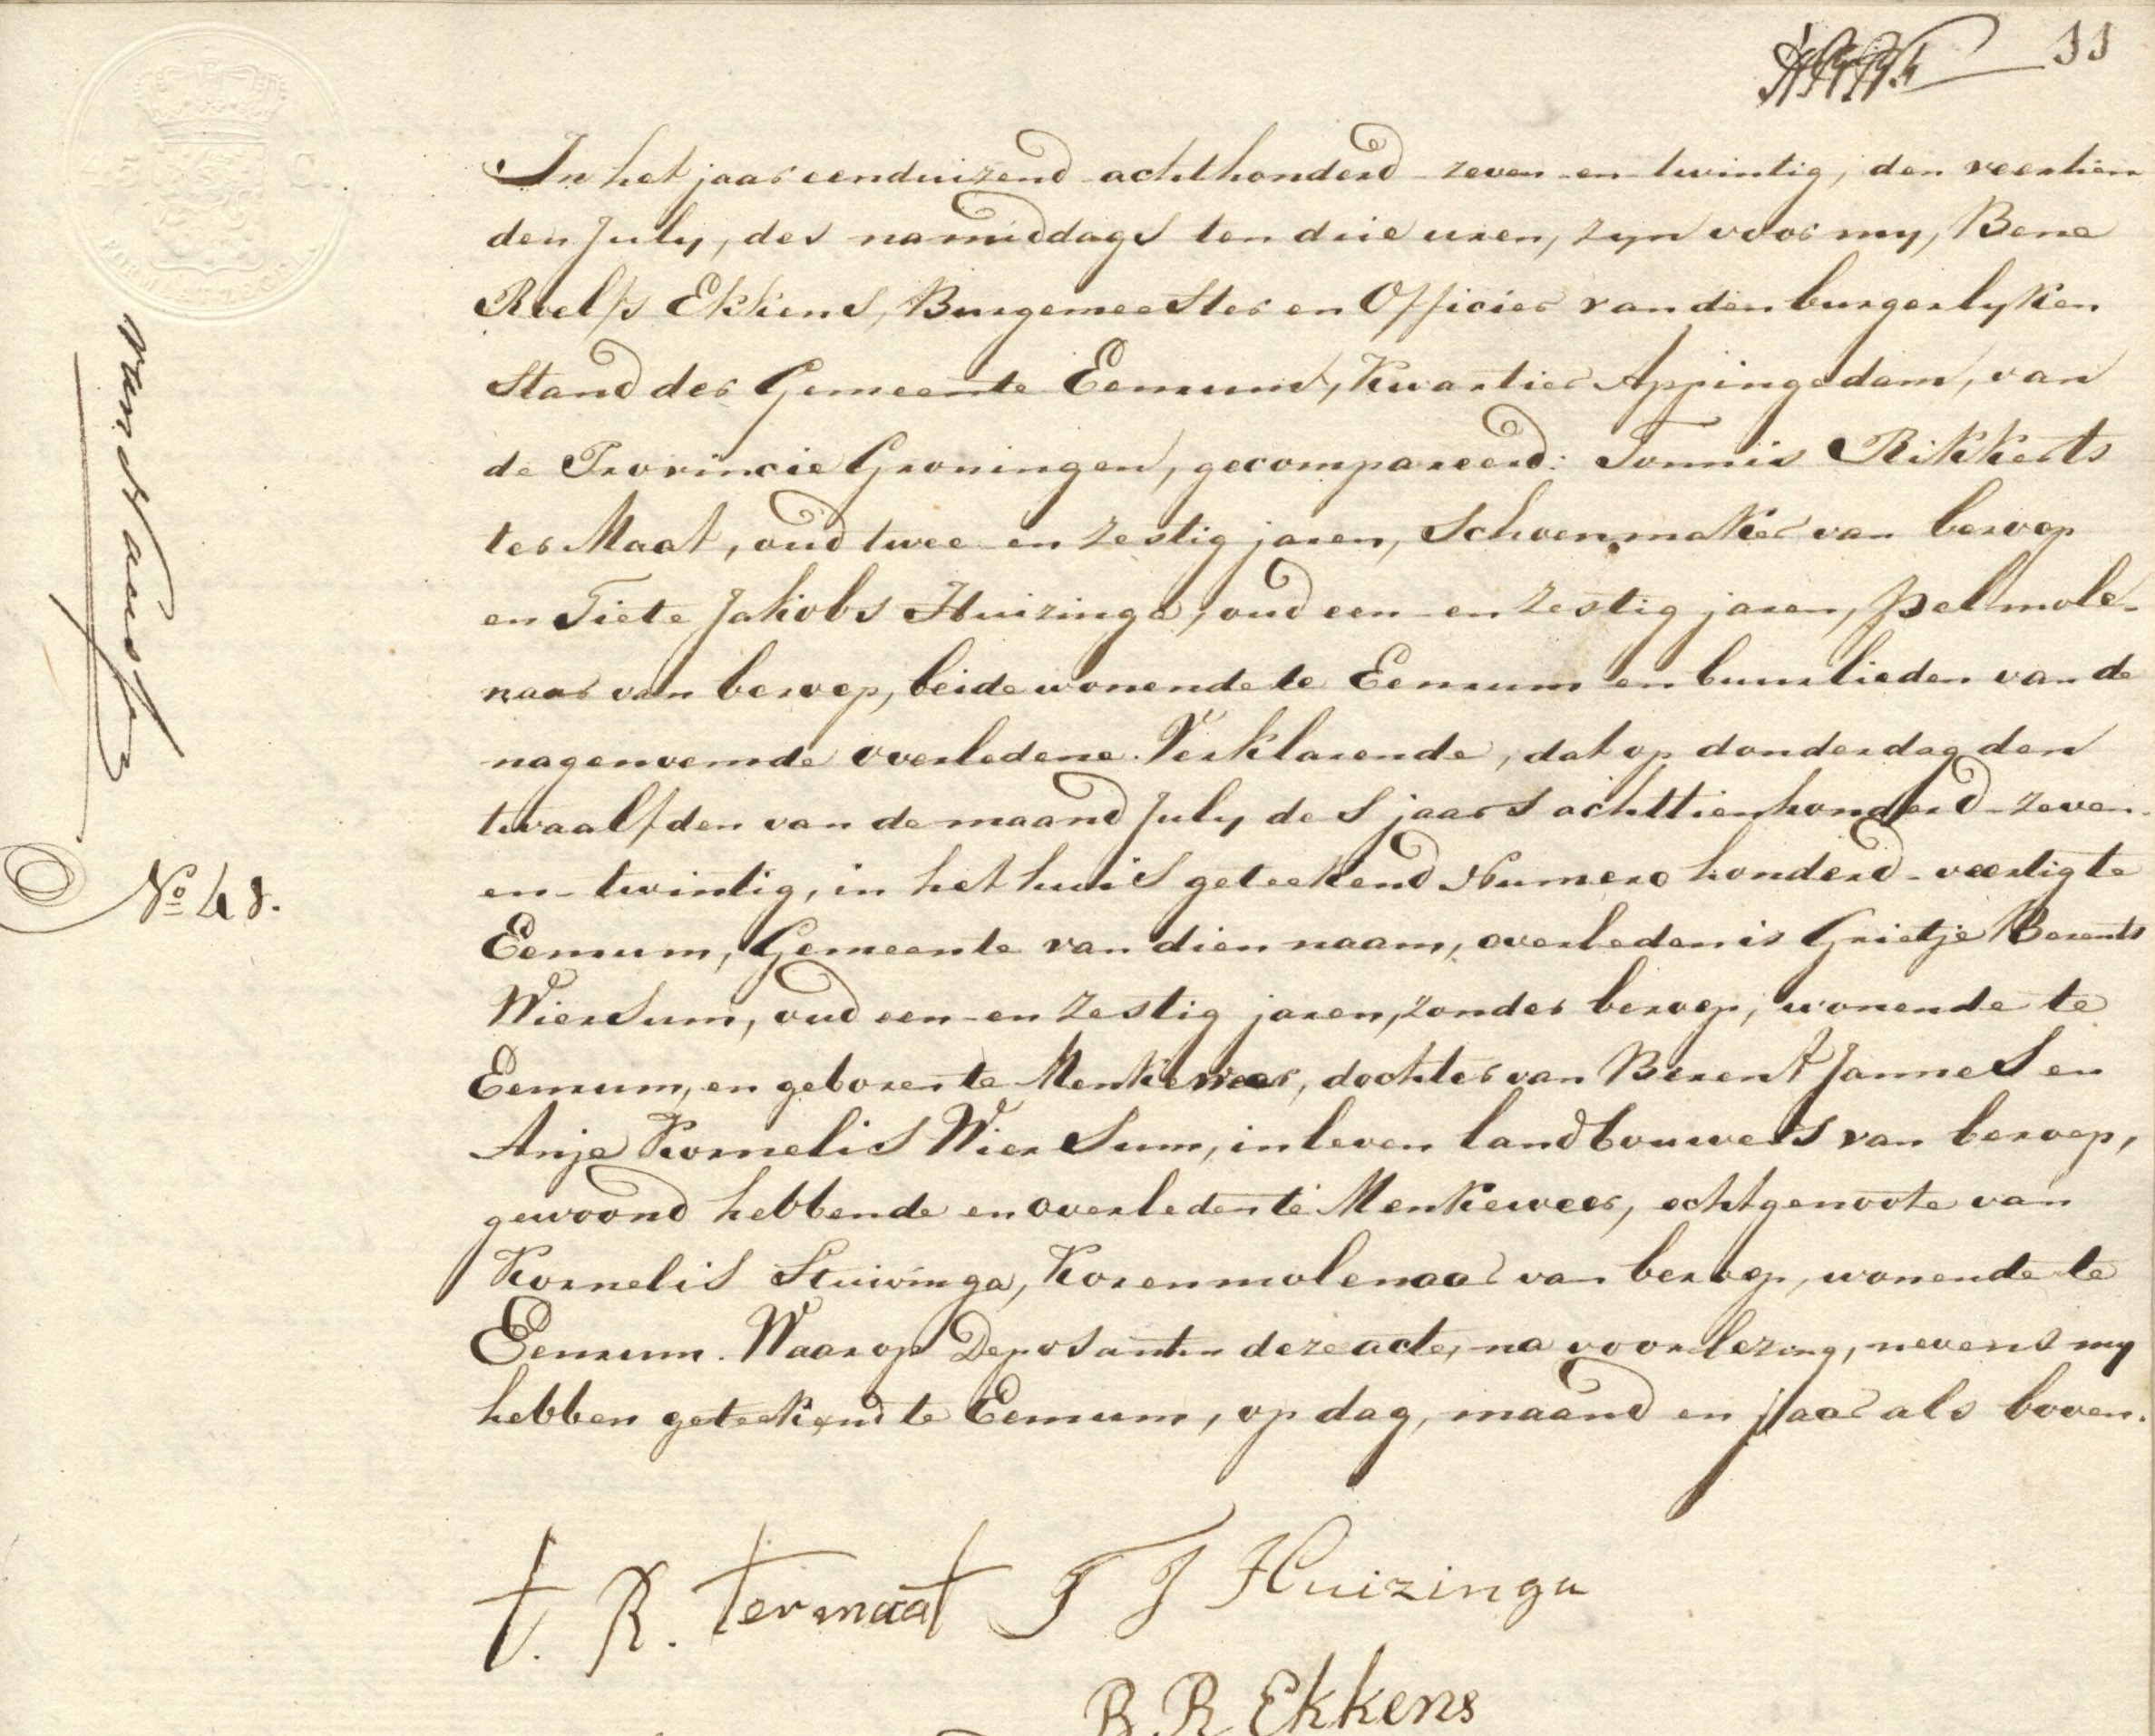 11
In het jaar eenduizend achthonderd zeven-en-twintig, den veertien
den July, des namiddags ten drie uren, zyn voor my, Bene
Roelfs Ekkens, Burgemeester en Officier van den burgerlyken
Stand der Gemeente Eenrum, Kwartier Appingedam, van
de Provincie Groningen, gecompareerd: Tonnis Rikkerts
ter Maat, oud twee en zestig jaren, Schoenmaker van beroep
en Tiete Jakobs Huizinga, oud een en zestig jaren, pelmole-
naar van beroep, beide wonende te Eenrum en buurlieden van de
nagenoemde overledene. Verklarende, dat op donderdag den
twaalfden van de maand July des jaars achttienhonderd-zeven-
en-twintig, in het huis geteekend Numero honderd-veertig te
Eenrum, Gemeente van dien naam, overleden is Grietje Berents
Wiersum, oud een-en zestig jaren, zonder beroep, wonende te
Eenrum, en geboren te Menkeweer, dochter van Berent Jannes en
Anje Kornelis Wiersum, in leven landbouwers van beroep,
gewoond hebbende en overleden te Menkeweer, echtgenoote van
Kornelis Stuivinga, Korenmolenaar van beroep, wonende te
Eenrum. Waarop Deposanten deze acte, na voorlezing, nevens my
hebben geteekend te Eenrum, op dag, maand en jaar als boven.
No 48.
T. R. termaat T J Huizinga
B. R Ekkens